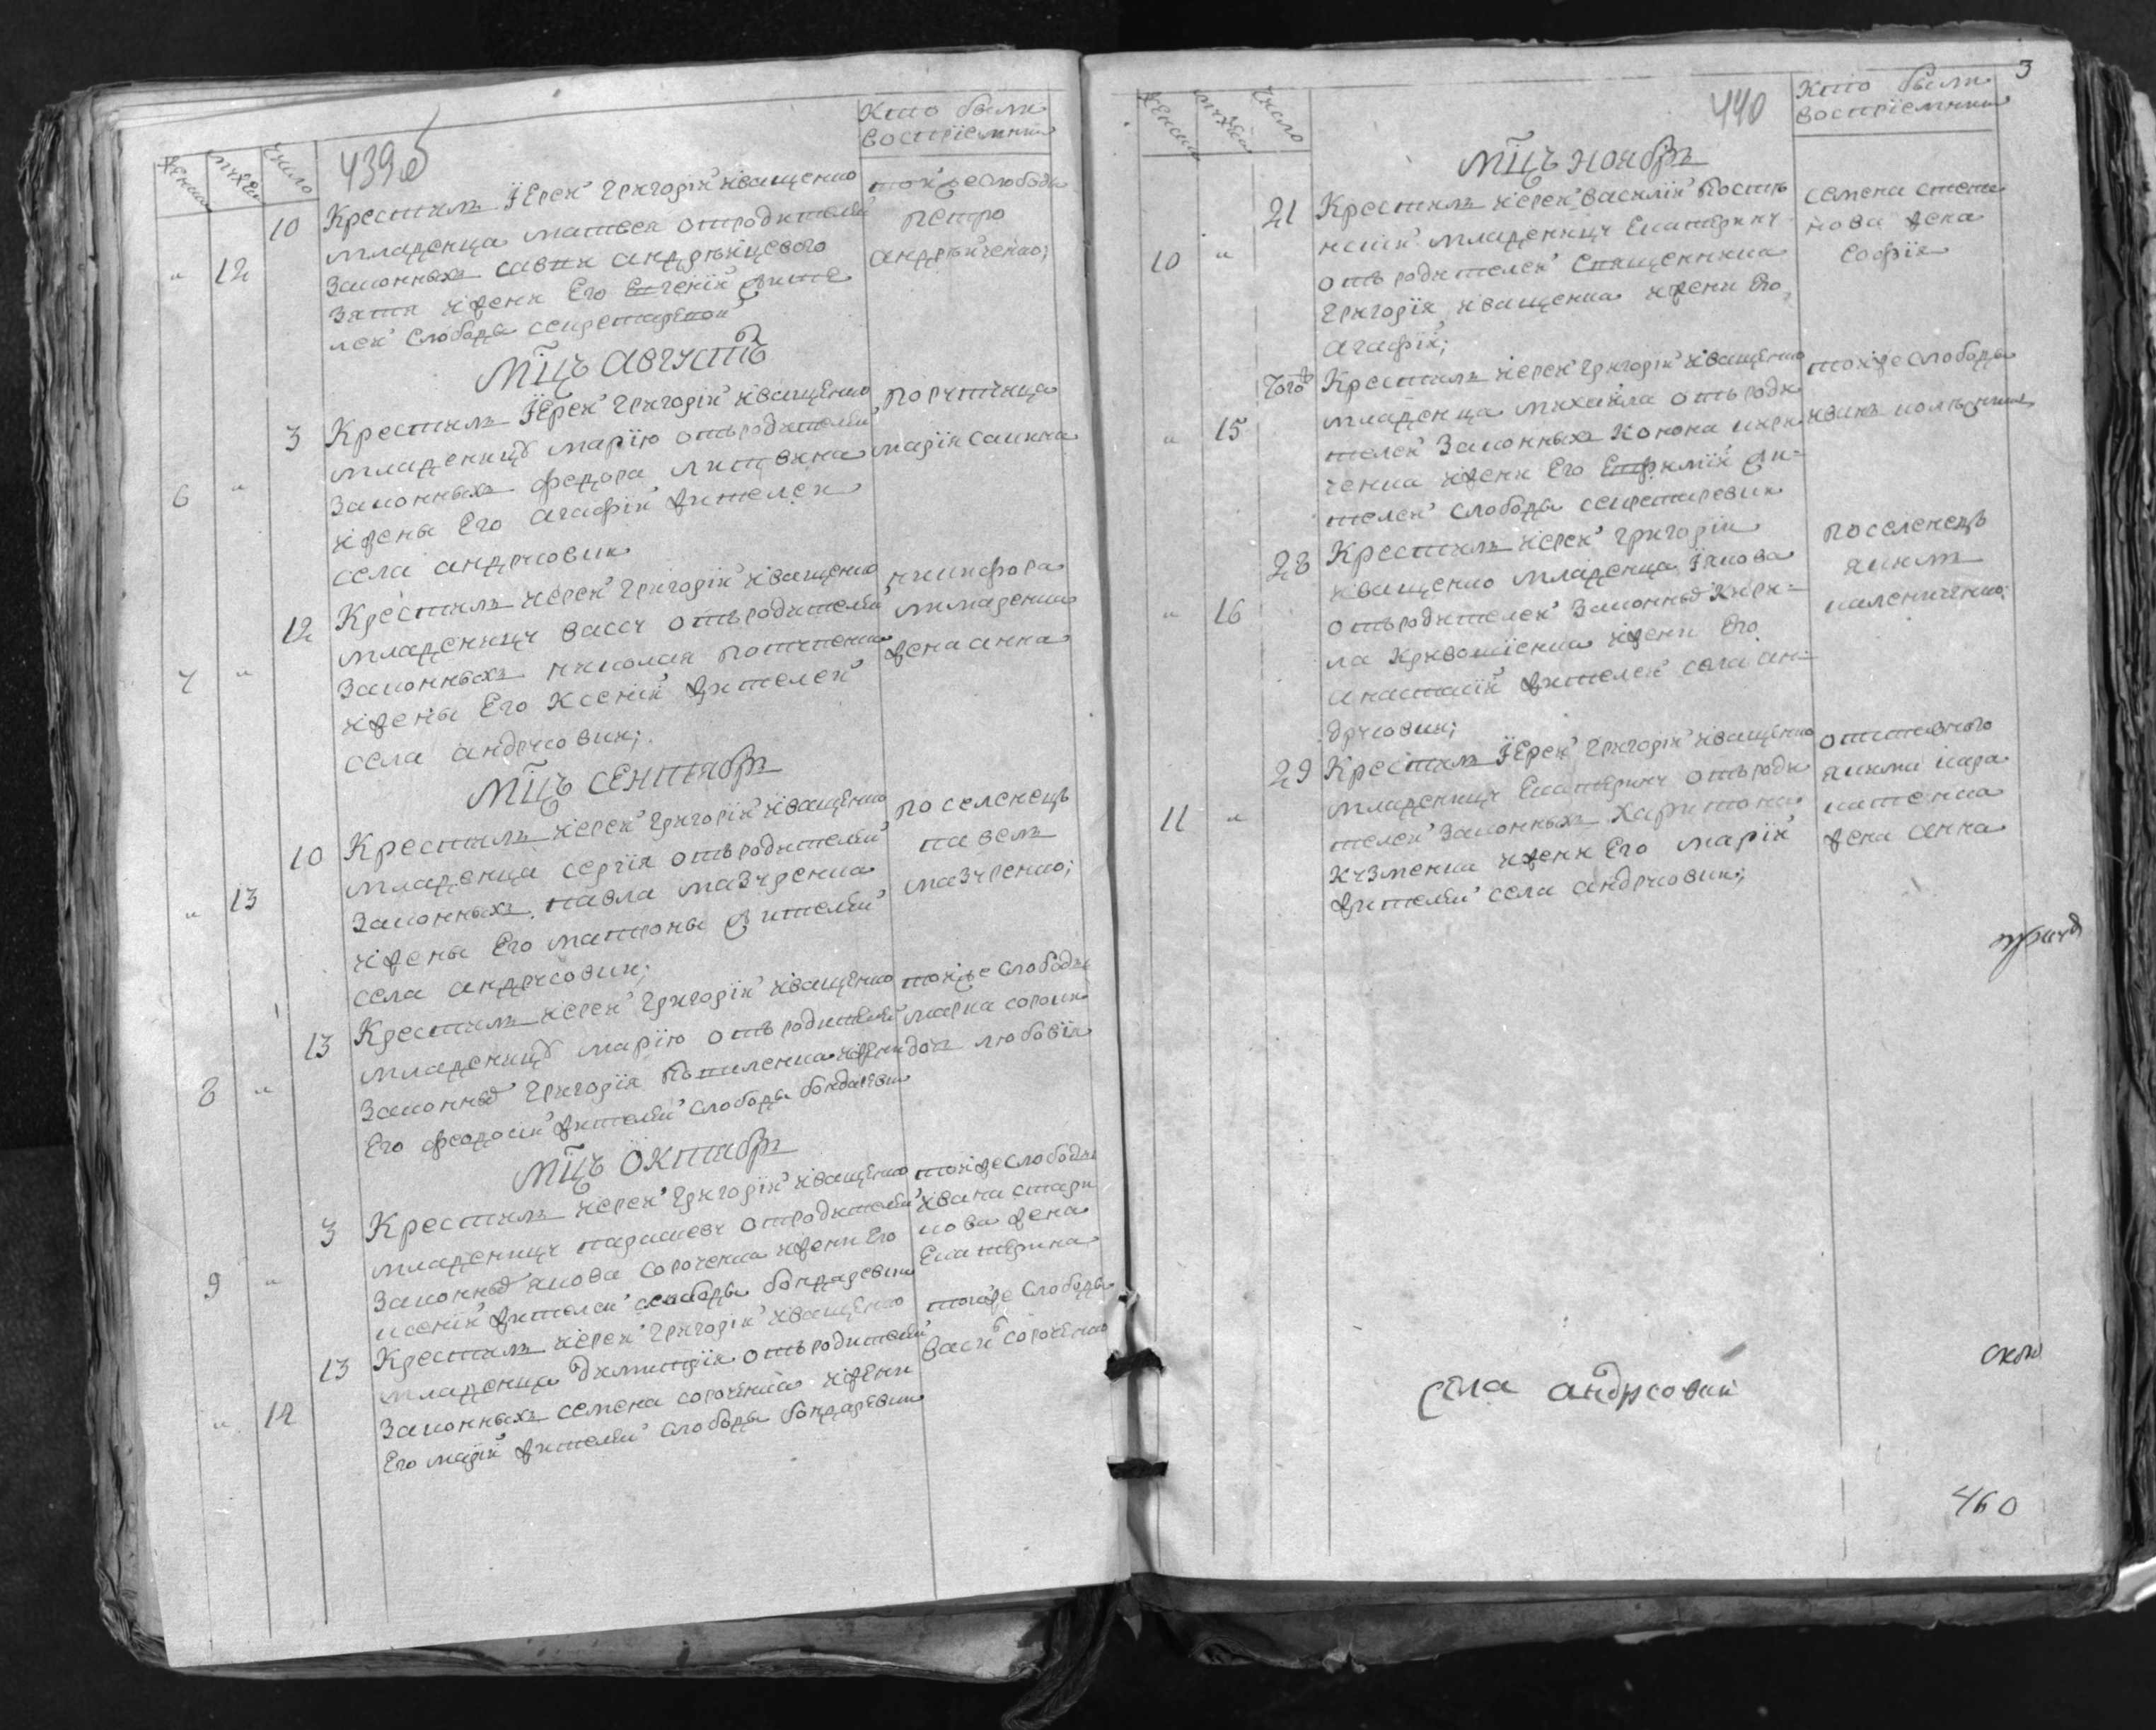 женска
мужеска
число
439 об
Кто были
восприемники
10 Крестилъ Іерей Григорій Иващенко
младенца матвея отродителей
12 законныхъ савы андрѣицевого
зятя ижени Его Евгеніи жите
лей слободы секретаревой
тоиже слободы
петро
андрѣиченко;
Мѣцъ августъ
3 Крестилъ Іерей Григорій Иващенко
младеницу марію отъродителей
6 законныхъ федора литвина
ижены Его агафіи жителей
села андрусовки
порутчица
марія
12 Крестилъ иерей Григорій Иващенко
младеницу вассу отъродителей
7 законныхъ николая потупенка
ижены Его Ксеніи жителей
села андрусовки;
никифора
жена анна
Мѣцъ сентябрь
10 Крестилъ иерей Григорій Иващенко
младенца сергія отъродителей
13 законныхъ павла мазуренка
ижены Его матроны жителей
села андрусовки;
поселенецъ
павелъ
мазуренко;
13 Крестилъ иерей Григорій Иващенко
младеницу марію отъ родителей
8 законныхъ Григорія ижени
Его феодосіи жителей слободы бондаревки
тоиже слободы
марка сороки
дочь любовія
Мѣцъ Октябрь
3 Крестилъ иерей Григорій Иващенко
младеницу параскеву отродителей
9 законныхъ якова сороченка ижени Его
ксеніи жителей слободы бондаревки
тоиже слободы
ивана стари
кова жена
Екатерина
13 Крестилъ иерей Григорій Иващенко
младенца димитрія отъродителей
14 законныхъ семена сороченка ижени
Его маріи жителей слободы бондаревки
тоиже слободы
сороченко
3
женска
мужеска
число
440
Кто были
восприемники
Мѣцъ ноябрь
21 Крестилъ иерей василій
младеницу Екатерину
10 отъ родителей священника
Григорія иващенка ижени Его
агафіи;
семена степа
нова жена
софія
Того Крестилъ иерей Григорій Иващенко
младенца михаила отъроди
15 телей законныхъ Конона
ченка ижени Его Евфиміи жи=
телей слободы секретаревки
тоиже слободы
28 Крестилъ иерей Григорій
иващенко младенца Іякова
16 отъродителей законныхъ кири=
ла кривошіенка ижени Его
анастасіи жителей села ан=
друсовки;
поселенецъ
якимъ
калениченко;
29 Крестилъ Іерей Григорій Иващенко
младеницу Екатерину отъроди
11 телей законныхъ Харитона
кузменка ижени Его маріи
жителей села андрусовки;
отставного
якима кара
катенка
жена анна
села андрусовки
460